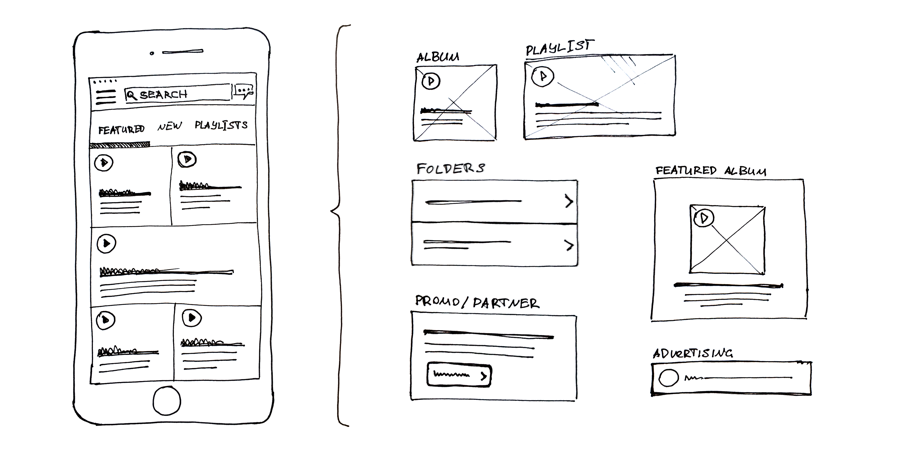 SEARCH
FEATURED NEW PLAYLISTS
ALBUM
PLAYLIST
FOLDERS
FEATURED ALBUM
PROMO/PARTNER
ADVERTISING